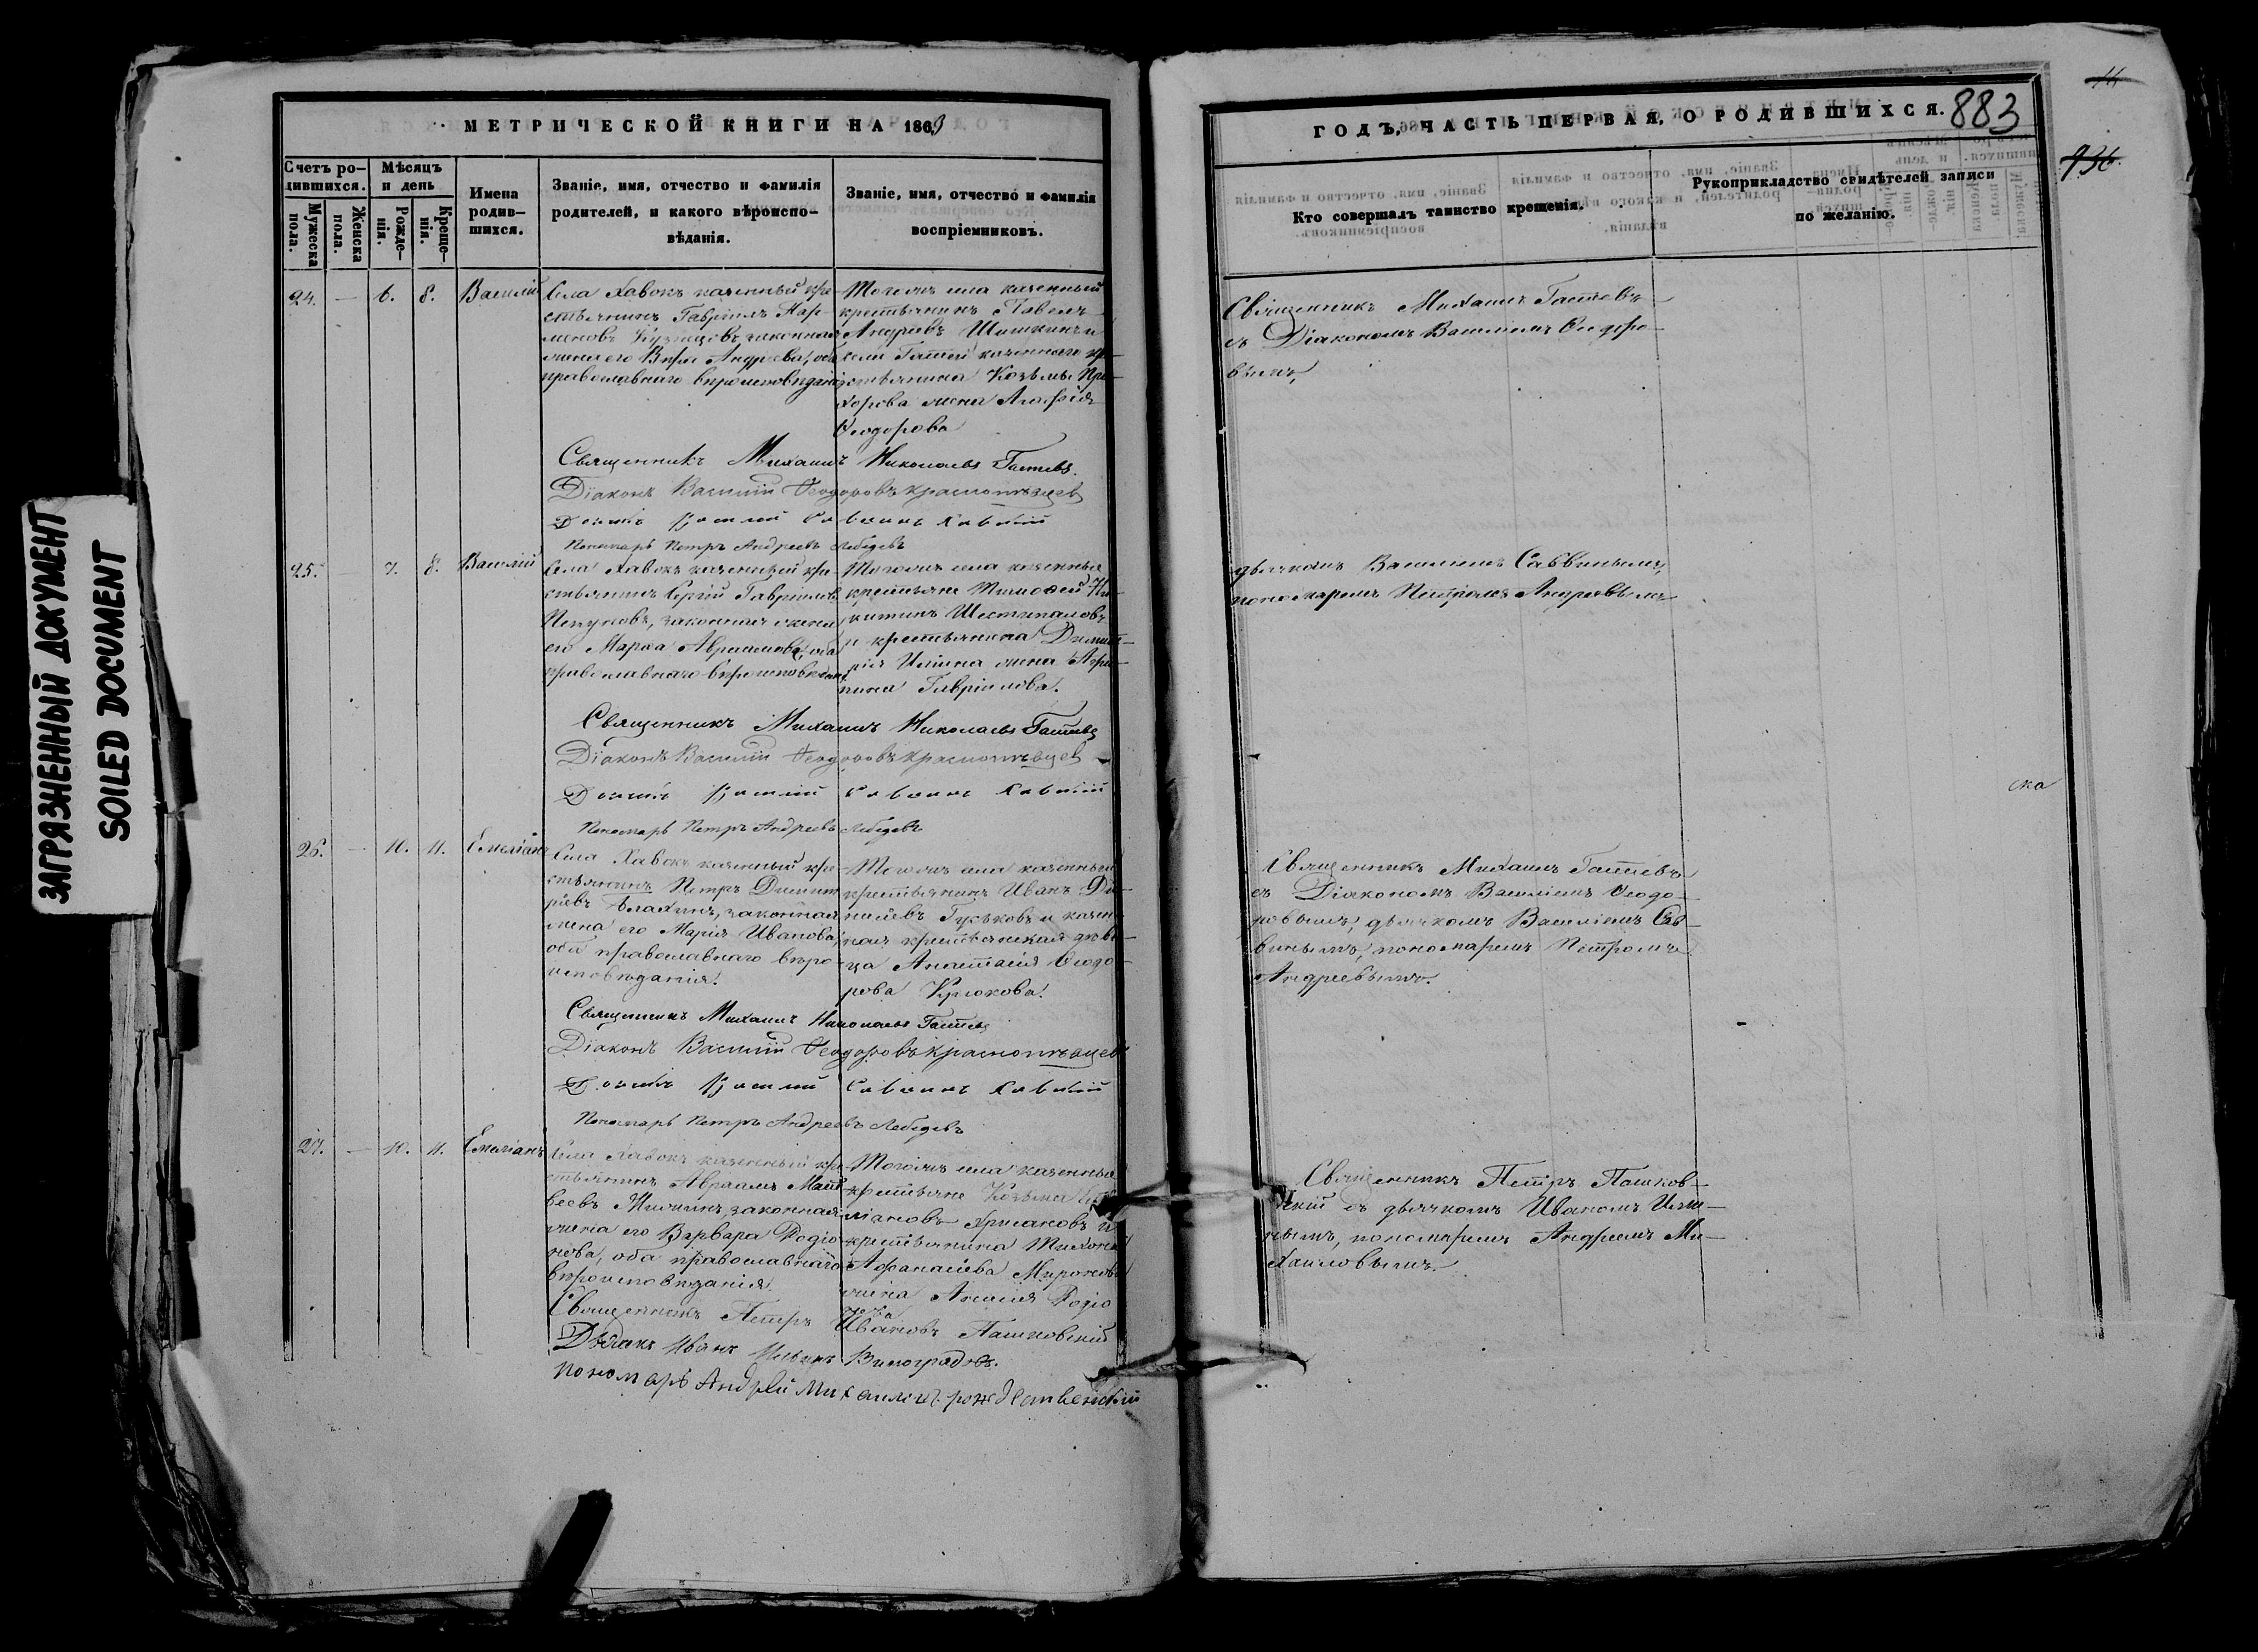 ЗАГРЯЗНЕННЫЙ ДОКУМЕНТ
SOILED DOCUMENT
МЕТРИЧЕСКОЙ КНИГИ НА 1869
Счетъ ро-
дившихся.
Мужеска
пола.
Женска
пола.
Мѣсяцъ
и день
Рожде-
нія.
Креще-
нія.
Имена
родив-
шихся.
Званіе, имя, отчество и фамилія
родителей, и какого вѣроиспо-
вѣданія.
Званіе, имя, отчество и фамилія
воспріемниковъ.
24. — 6. 8. Василій
Села Хавокъ казенный кре-
стьянинъ Гавріилъ Пар-
меновъ Кузнецовъ, законная
жена его Андреева, оба
православнаго вѣроисповѣданія
Тогожъ села казенный
крестьянинъ Павелъ
Андреевъ Шишкинъ и
казеннаго кре-
стьянина Козьмы Про-
хорова жена Агафія
Ѳеодорова
Священникъ Михаилъ Николаевъ
Діаконъ Василій Ѳеодоровъ Краснопѣвцев
Дьячокъ Василий Савинъ Хавский
Пономарь Петръ Андреевъ Лебедевъ
25. 7. 8. Василій
Села Хавокъ казенный кре-
стьянинъ Сергій Гавріиловъ
законная жена
его Марѳа оба
православнаго вѣроисповѣданія
Тогожъ села казенные
крестьяне Тимоѳей Ни-
китинъ
и крестьянина Димит-
рія Ильина жена Агри-
пина Гавріилова.
Священникъ Михаилъ Николаевъ
Діаконъ Василій Ѳеодоровъ Краснопѣвцев
Дьячокъ Василий Савинъ Хавский
Пономарь Петръ Андреевъ Лебедевъ
26. — 10. 11. Емеліанъ
Села Хавокъ казенный кре-
стьянинъ Петръ Димит-
ріевъ законная
жена его Марія Иванова,
оба православнаго вѣро-
исповѣданія.
Тогожъ села казенный
крестьянинъ Иванъ
Гуськовъ и казен-
ная крестьянская дѣви-
ца Анастасія Ѳеодо-
рова Крюкова.
Священникъ Михаилъ Николаевъ
Діаконъ Василий Ѳеодоровъ Краснопѣвцев
Дьячокъ Василий Савинъ Хавский
Пономарь Петръ Андреевъ Лебедевъ
27. — 10. 11. Емеліанъ
Села Хавокъ казенный кре-
стьянинъ Авраамъ Мат-
веевъ законная
жена его Варвара Родіо-
нова, оба православнаго
вѣроисповѣданія.
Тогожъ села казенные
крестьяне Козьма
и
крестьянина Тихона
Аѳанасіева Миронова
жена Родіо
нова
Священникъ Петръ Ивановъ Пашковскій
Дьячокъ Иванъ Ильинъ Виноградовъ.
Пономарь Андрей Михаиловъ рождественский
ГОДЪ, ЧАСТЬ ПЕРВАЯ, О РОДИВШИХСЯ.
883
936.
Кто совершалъ таинство крещенія.
Рукоприкладство свидѣтелей записи
по желанію.
Священникъ Михаилъ
съ Діакономъ Василіемъ Ѳеодоро-
вымъ,
дьячкомъ Василіемъ Саввинымъ,
пономаремъ Петромъ Андреевымъ
Священникъ Михаилъ
съ Діакономъ Василіемъ Ѳеодо-
ровымъ, дьячкомъ Василіемъ Сав-
винымъ, пономаремъ Петромъ
Андреевымъ.
Священникъ Петръ Пашков-
скій съ дьячкомъ Иваномъ Ильи-
нымъ, пономаремъ Андреемъ Ми-
хаиловымъ.